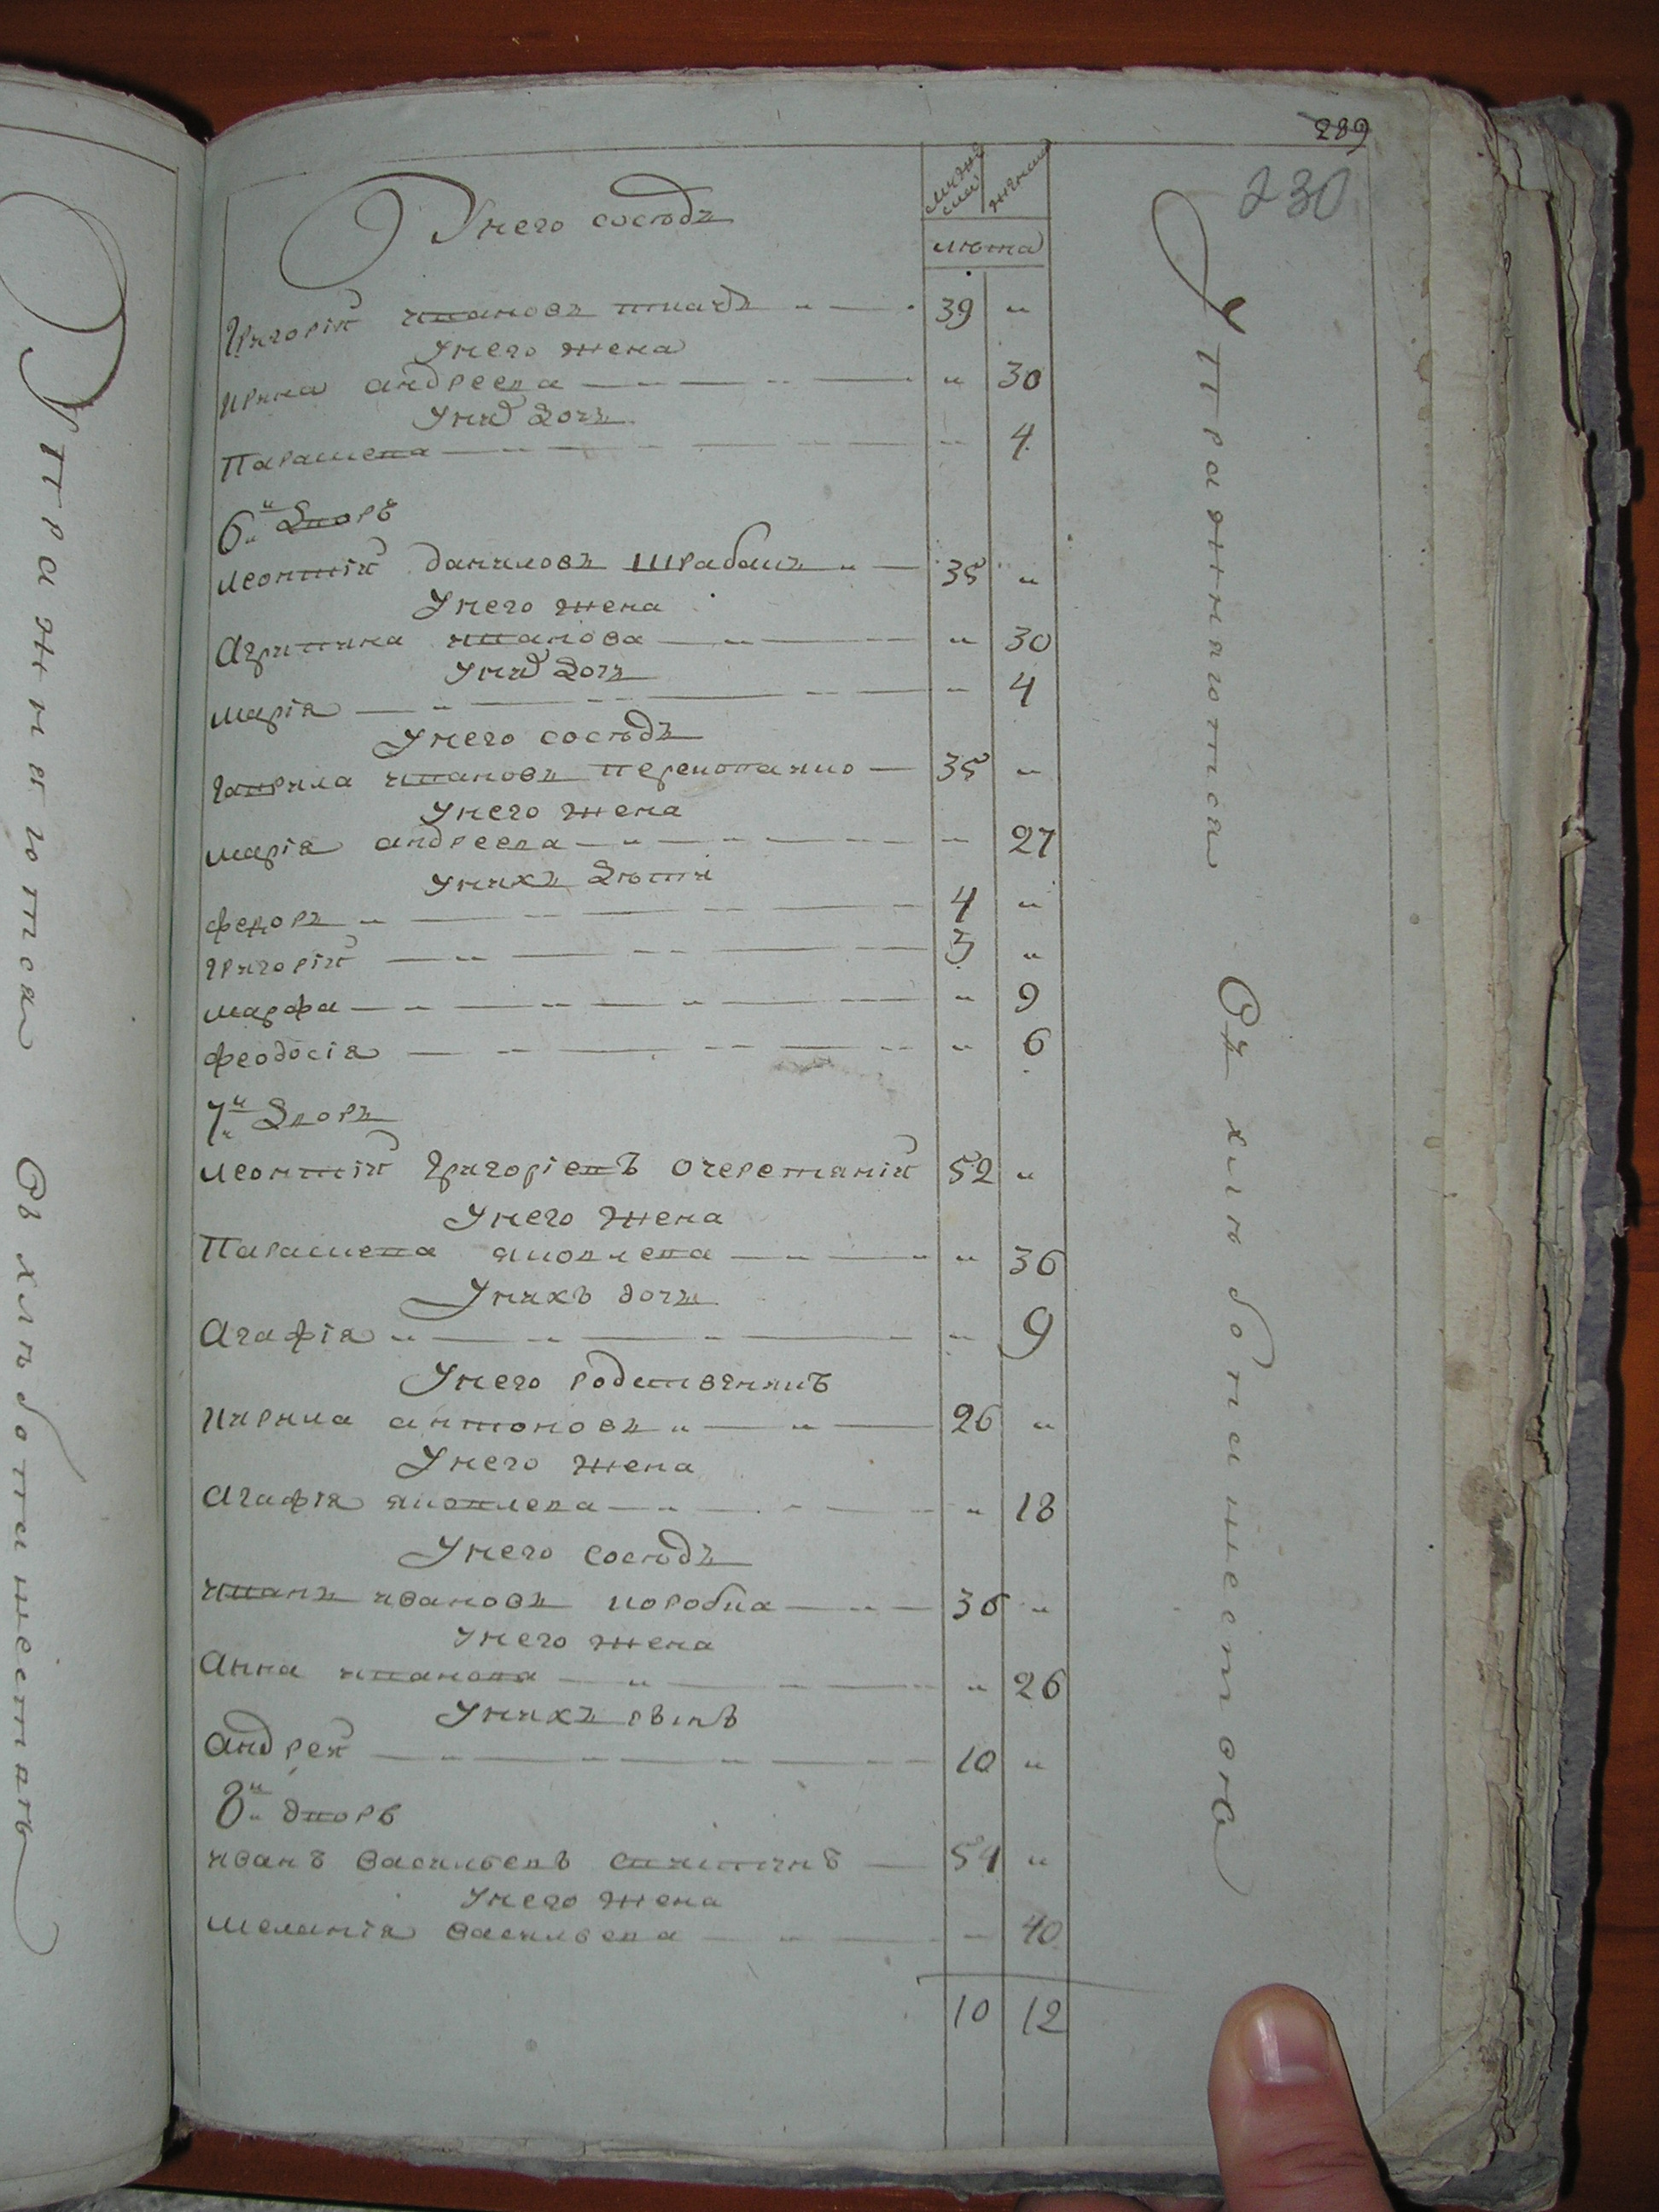 289
230
мужей
женъ
лѣта
У него сосѣдъ
Григорій ивановъ ткачъ 39 "
У него жена
Ирина андреева " 30
У них дочь
Параскева " 4
6й дворъ
Леонтій даниловъ шрабакъ 35 "
У него жена
Агрипина иванова " 30
У них дочь
Марія " 4
У него сосѣдъ
Гаврила ивановъ перекопайко 35 "
У него жена
Марія андреева " 27
У нихъ дѣти
Федоръ 4 "
Григорій 3 "
Марфа " 9
Феодосія " 6
7й дворъ
Леонтій Григоріевъ очеретяній 52 "
У него жена
Параскева яковлева " 36
У нихъ дочь
Агафія " 9
У него родственникъ
Кирила антоновъ 26 "
У него жена
Агафія яковлева " 18
У него сосѣдъ
Иванъ ивановъ коробка 36 "
У него жена
Анна иванова " 26
У нихъ сынъ
Андрей 10 "
8й дворъ
Иванъ васильевъ 54 "
У него жена
Меланія васильева 40
10 12
Упражняются въ хлѣбопашествѣ
Упражняются въ хлѣбопашествѣ